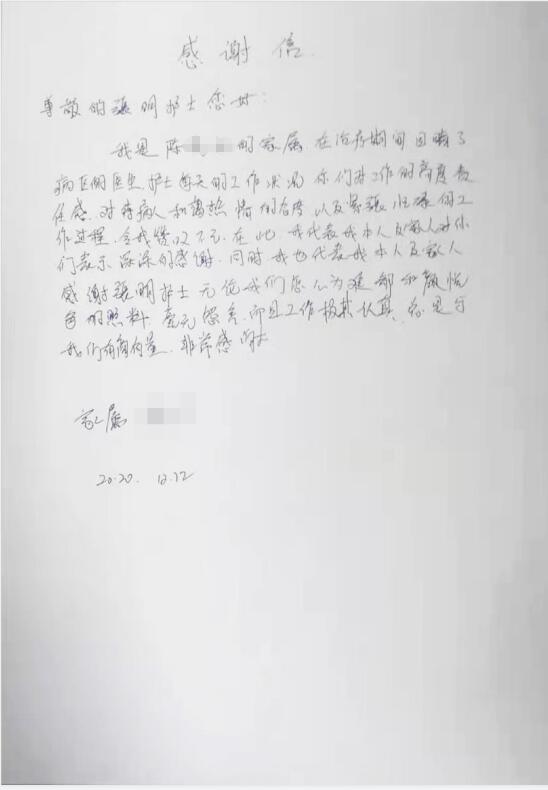 感谢信
尊敬的张明护士您好:
我是陈 的家属 在治疗期间目睹了
病区的医生护士每天的工作状况 你们对工作的高度责
任感.对待病人和蔼热情的态度以及紧张忙碌的工
作过程.令我赞叹不已.在此.我代表我本人及家人对你
们表示深深的感谢.同时.我也代表我本人及家人
感谢张明护士无论我们怎么为难都和颜悦
色的照料.毫无怨言.而且工作极其认真.总是与
我们有商有量.非常感
家属
2020. 12.12